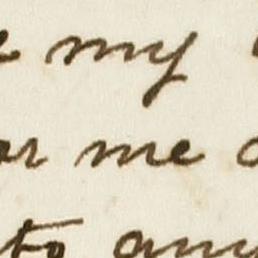 my
me
to any